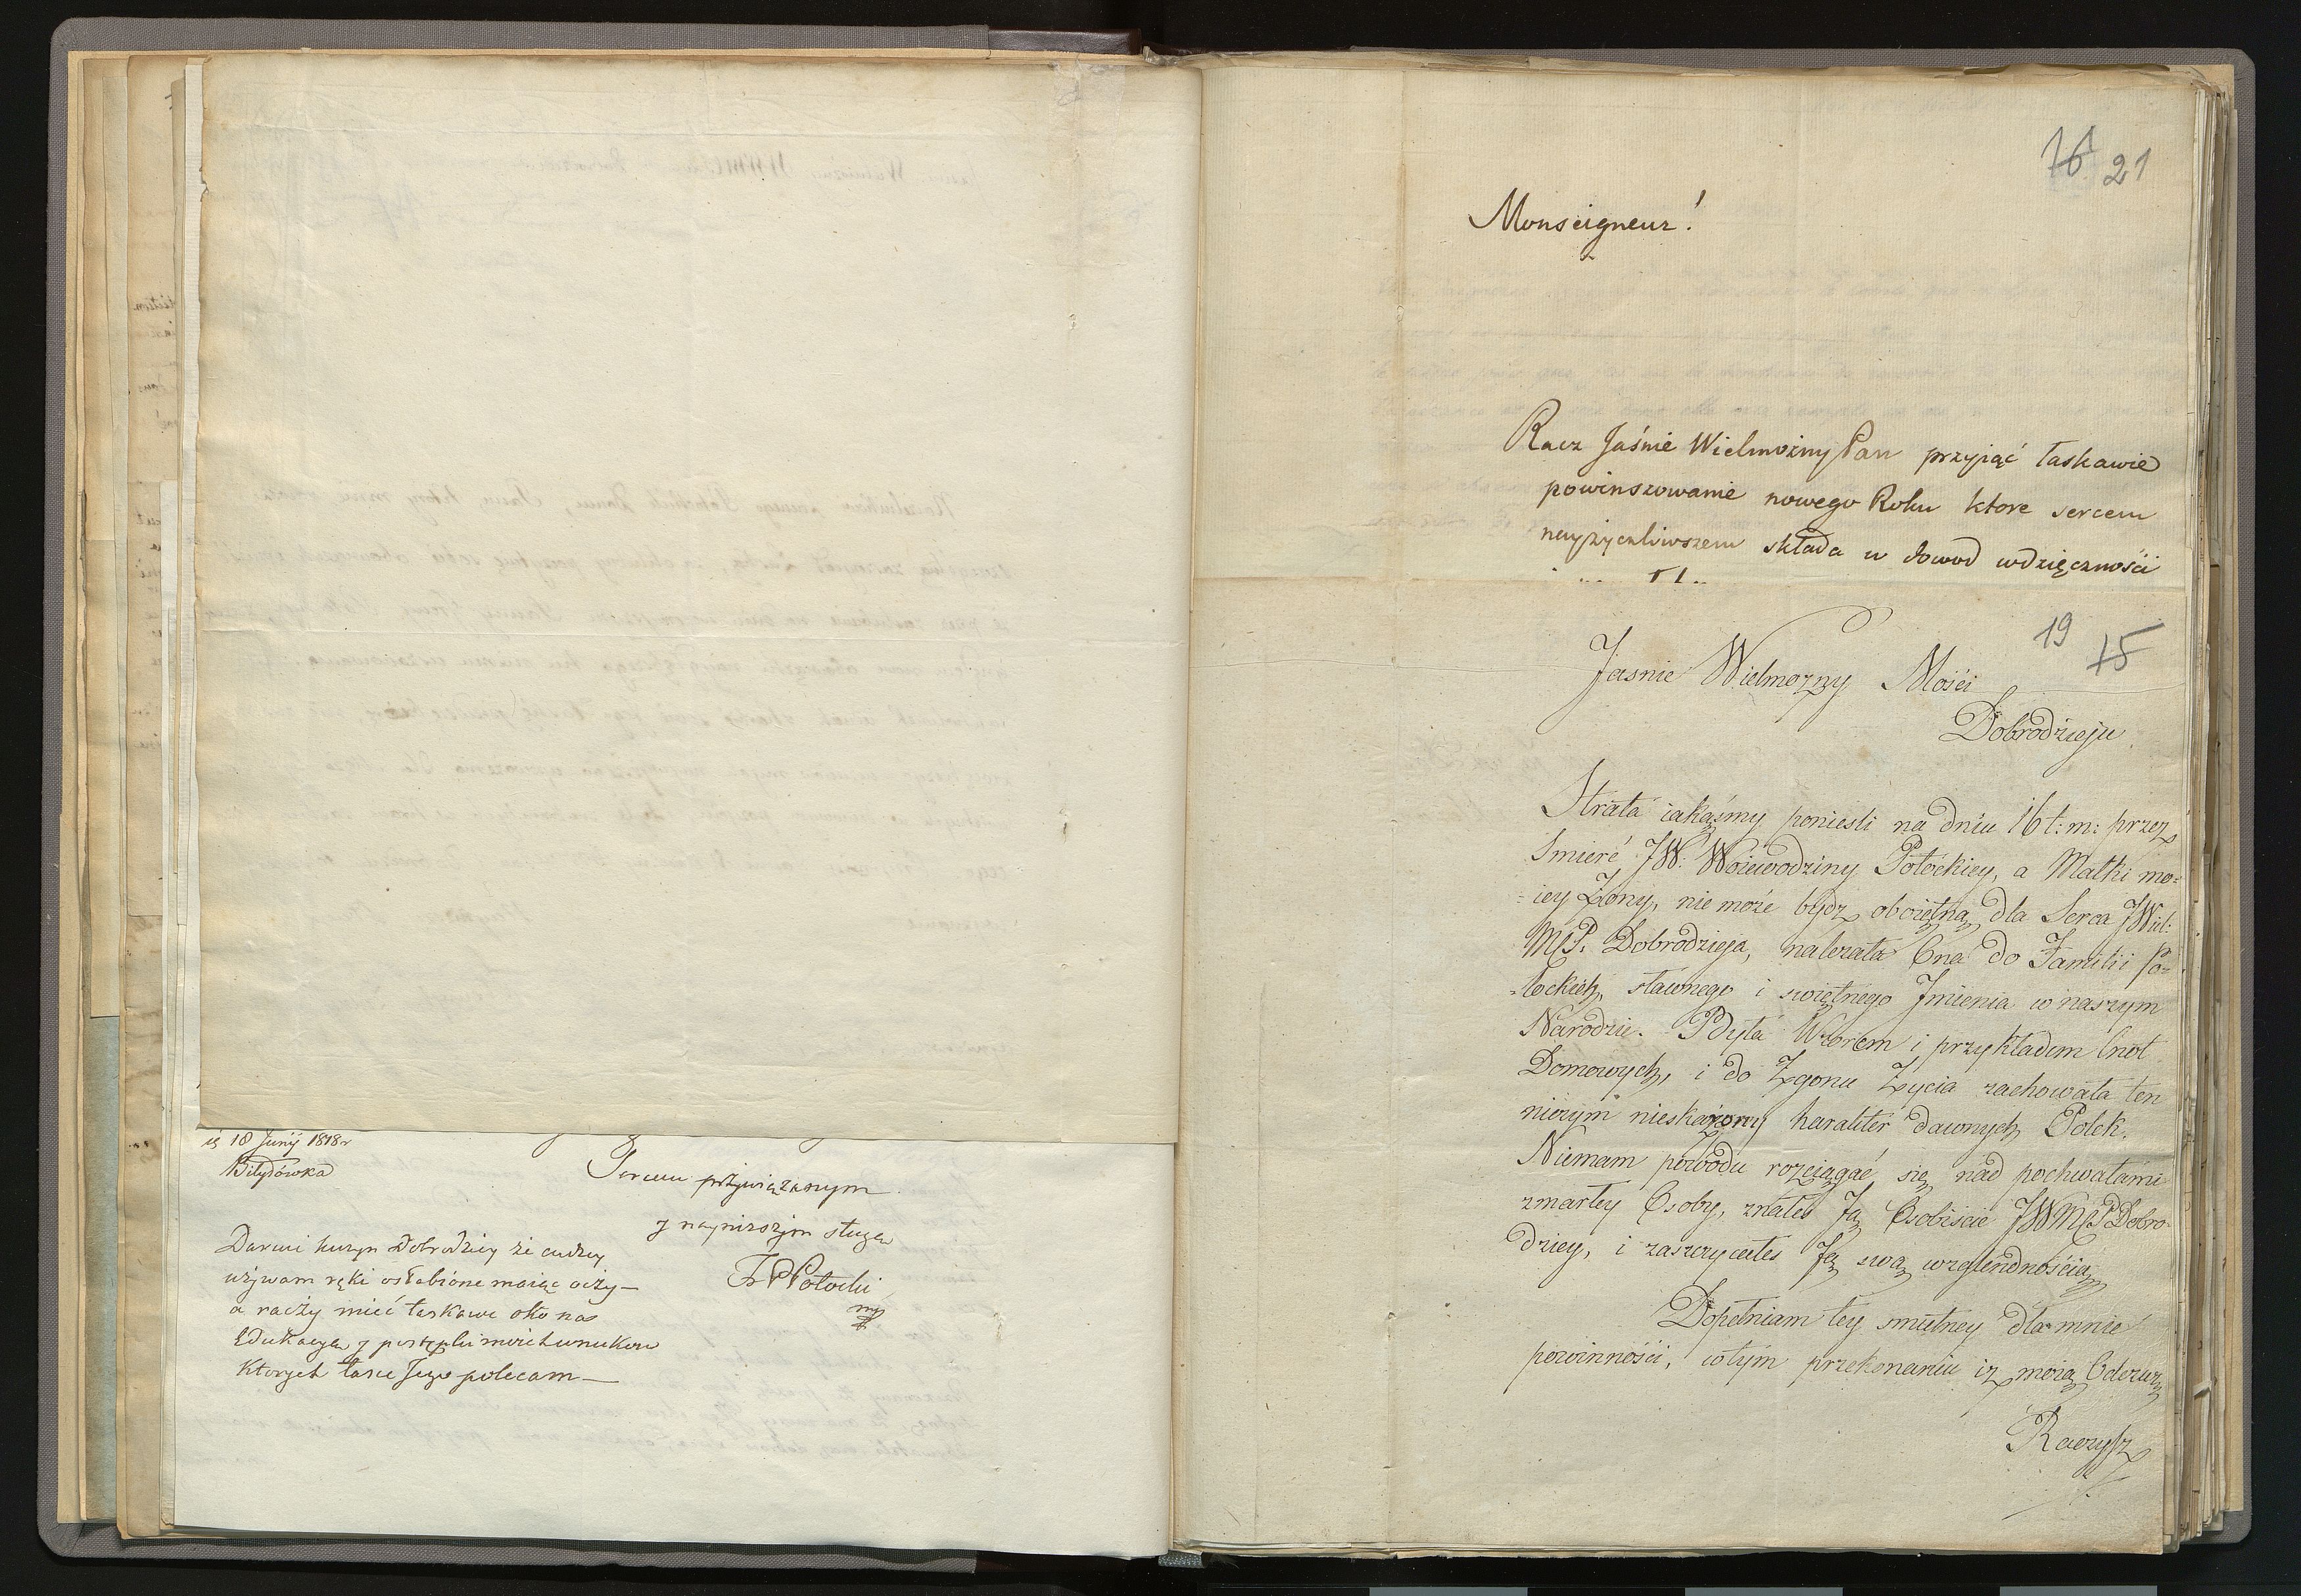 18 Junij 1818r
Bitydówka
Sercem przywiązanym
y nayniższym sługą
Potocki
mp
Daruie kuzyn Dobrodziey że cudzey
używam ręki osłabione maiąc oczy—
a raczy mieć łaskawe oko na
Edukacyą y postępki moich wnuków
Ktorych łasce Jego polecam—
16 21
Monseigneur!
Racz Jaśnie Wielmożny Pan przyiąć łaskawie
powinszowanie nowego Roku ktore sercem
nayżyczliwszem składa w dowod wdzięczności
19 15
Jasnie Wielmozny Mości
Dobrodzieju
Strata iakąsmy poniesli na dniu 16 t: m: przez
Smierć JW: Woiewodziny Potockiey, a Matki mo=
=iey Żony, nie może bydz oboiętną dla Serca JWiel:
MCP. Dobrodzieja, nalezała Ona do Familii Po=
=tockich, sławnego i swietnego Jmienia w naszym
Narodzie. Była Wzorem i przykładem Cnot
Domowych, i do Zgonu Zycia zachowała ten
niczym nieskażony harakter dawnych Polek.
Niemam powodu rozciągać się nad pochwałami
zmarłey Osoby, znałes Ją Osobiscie JWMCP Dobro=
dziey, i zaszczycałes Ją swą względnością
Dopełniam tey smutney dla mnie
powinności, w tym przekonaniu iz moią Odezwę
Raczysz